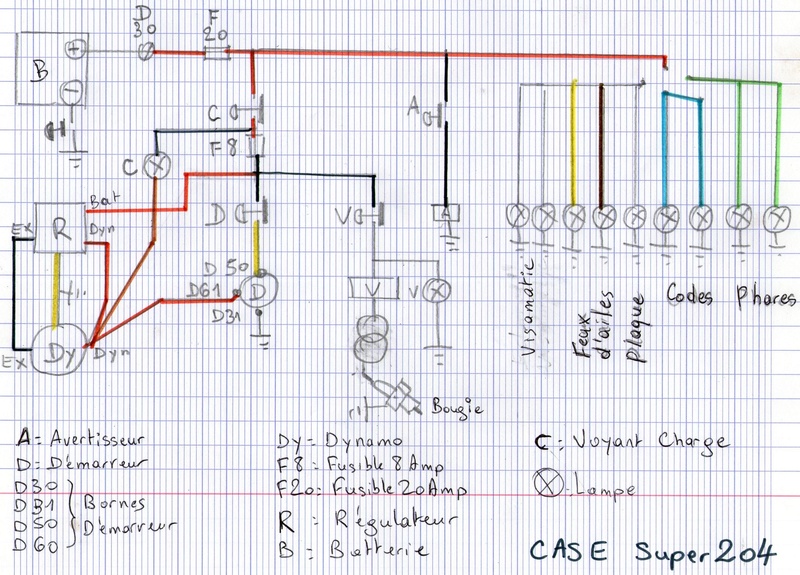 D
30
F
20
B
+
-
C
A
F8
C
Bat
R
Ex
Dyn
D
V
A
D50
D61
D
D31
V
V
Dy
Ex
Dyn
Bougie
Visamatic
Feux
d'ailes
Plaque
Codes
Phares
A = Avertisseur
D = Démarreur
D30
D31
D50
D60
Bornes
Démarreur
Dy = Dynamo
F8 = Fusible 8 Amp
F20 = Fusible 20 Amp
R = Régulateur
B = Batterie
C = Voyant Charge
= Lampe
CASE Super 204